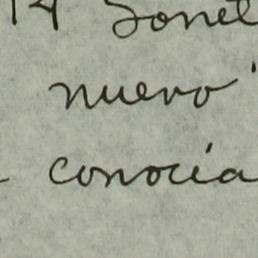 14 Sonet
nuevo
conocía